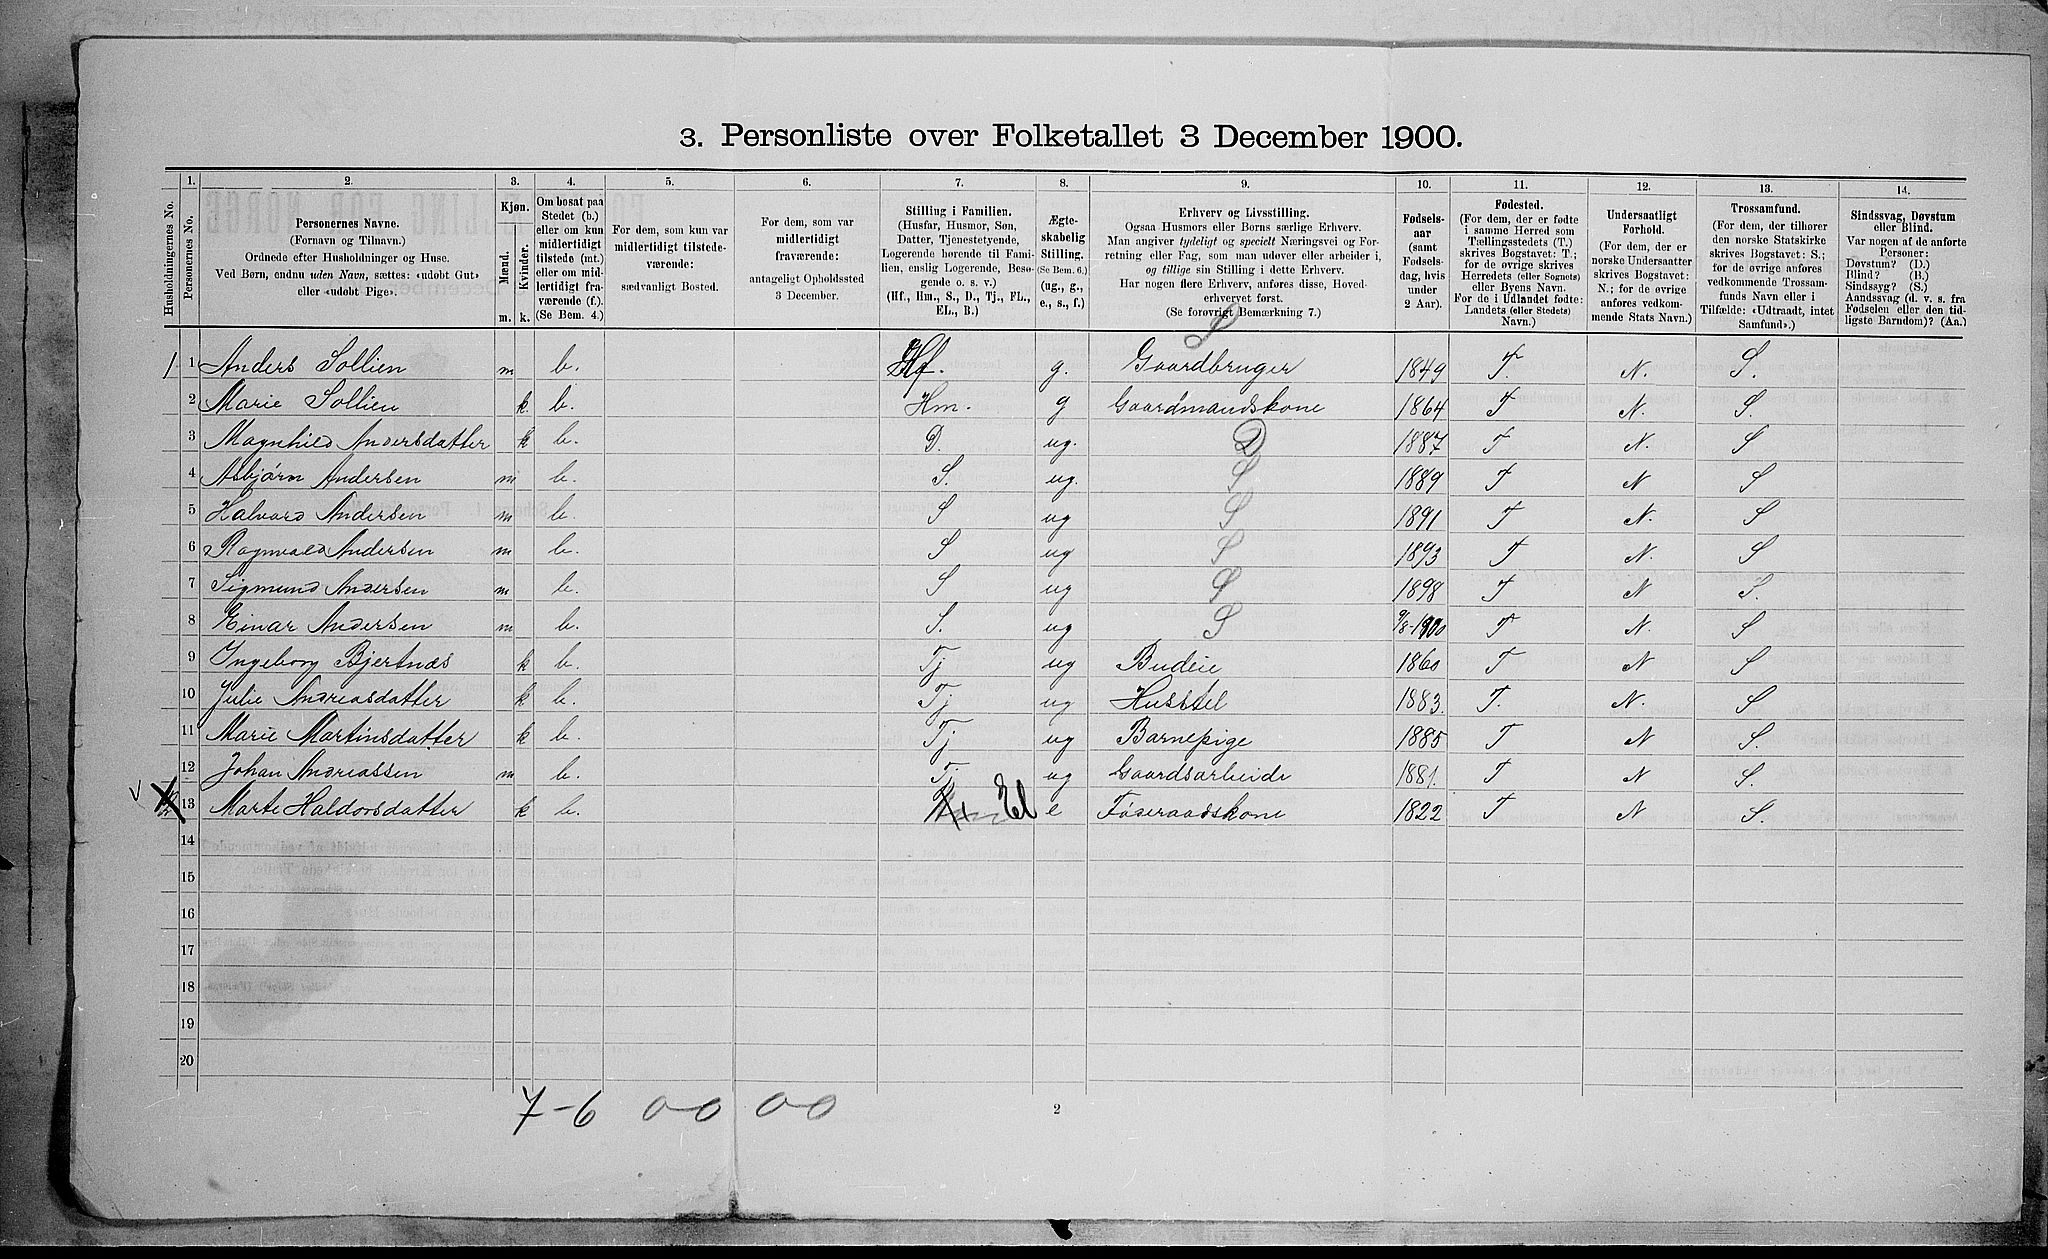 3. Personliste over Folketallet 3 December 1900.
1. 2. 3. 4. 5. 6. 7. 8. 9. 10. 11. 12. 13. 14.
Husholdningernes No.
Personernes No.
Personernes Navne.
(Fornavn og Tilnavn.)
Ordnede efter Husholdninger og Huse.
Ved Børn, endnu uden Navn, sættes: «udøbt Gut»
eller «udøbt Pige».
Kjøn.
Mænd.
Kvinder.
m. k.
Om bosat paa
Stedet (b.)
eller om kun
midlertidigt
tilstede (mt.)
eller om mid-
lertidigt fra-
værende (f.).
(Se Bem. 4.)
For dem, som kun var
midlertidigt tilstede-
værende:
sædvanligt Bosted.
For dem, som var
midlertidigt
fraværende:
antageligt Opholdssted
3 December.
Stilling i Familien.
(Husfar, Husmor, Søn,
Datter, Tjenestetyende,
Logerende hørende til Fami-
lien, enslig Logerende, Besø-
gende o. s. v.)
(Hf., Hm., S., D., Tj., FL.,
EL., B.)
Ægte-
skabelig
Stilling.
(Se Bem. 6.)
(ug., g.,
e., s., f.)
Erhverv og Livsstilling.
Ogsaa Husmors eller Børns særlige Erhverv.
Man angiver tydeligt og specielt Næringsvei og For-
retning eller Fag, som man udøver eller arbeider i,
og tillige sin Stilling i dette Erhverv.
Har nogen flere Erhverv, anføres disse, Hoved-
erhvervet først.
(Se forøvrigt Bemærkning 7.)
Fødsels-
aar
(samt
Fødsels-
dag, hvis
under
2 Aar).
Fødested.
(For dem, der er fødte
i samme Herred som
Tællingsstedets (T.)
skrives Bogstavet: T.;
for de øvrige skrives
Herredets (eller Sognets)
eller Byens Navn.
For de i Udlandet fødte:
Landets (eller Stedets)
Navn.)
Undersaatligt
Forhold.
(For dem, der er
norske Undersaatter
skrives Bogstavet:
N.; for de øvrige
anføres vedkom-
mende Stats Navn.)
Trossamfund.
(For dem, der tilhører
den norske Statskirke
skrives Bogstavet: S.;
for de øvrige anføres
vedkommende Trossam-
funds Navn eller i
Tilfælde: «Udtraadt, intet
Samfund».)
Sindssvag, Døvstum
eller Blind.
Var nogen af de anførte
Personer:
Døvstum? (D.)
Blind? (B.)
Sindssyg? (S.)
Aandssvag (d. v. s. fra
Fødselen eller den tid-
ligste Barndom)? (Aa.)
S
1 1 Anders Sollien m b. Hf. g. Gaardbruger 1849 T. N. S.
2 Marie Sollien k. b. Hm. g Gaardmandskone 1864 T N. S.
3 Magnhild Andersdatter k b. D. ug. D 1887 T N. S
4 Asbjørn Andersen m b. S. ug. S 1889 T N S
5 Halvard Andersen m b. S ug S 1891 T N. S
6 Ragnvald Andersen m b. S ug S 1893 T N. S
7 Sigmund Andersen m b. S ug S 1898 T N S.
8 Einar Andersen m b. S. ug S 9/8-1900 T N. S
9 Ingeborg Bjertnæs k b. Tj ug Budeie 1860 T N S
10 Julie Andreasdatter k b. Tj ug Husstel 1883. T. N. S
11 Marie Martinsdatter k b. Tj ug Barnepige 1885 T N S.
12 Johan Andreassen m b. Tj ug Gaardsarbeide 1881. T N S.
13 Marte Haldorsdatter k b. El e Føderaadskone 1822 T N S.
14
15
16
17
18
19
20
7-6 0-0 0-0
2